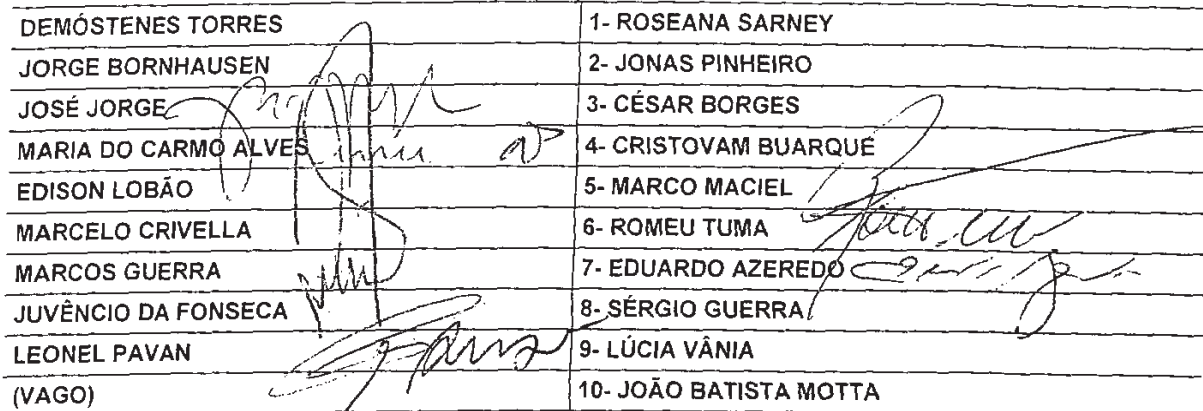 DEMÓSTENES TORRES 1- ROSEANA SARNEY
JORGE BORNHAUSEN 2- JONAS PINHEIRO
JOSÉ JORGE 3- CÉSAR BORGES
MARIA DO CARMO ALVES 4- CRISTOVAM BUARQUE
EDISON LOBÃO 5- MARCO MACIEL
MARCELO CRIVELLA 6- ROMEU TUMA
MARCOS GUERRA 7- EDUARDO AZEREDO
JUVÊNCIO DA FONSECA 8- SÉRGIO GUERRA
LEONEL PAVAN 9- LÚCIA VÂNIA
(VAGO) 10- JOÃO BATISTA MOTTA